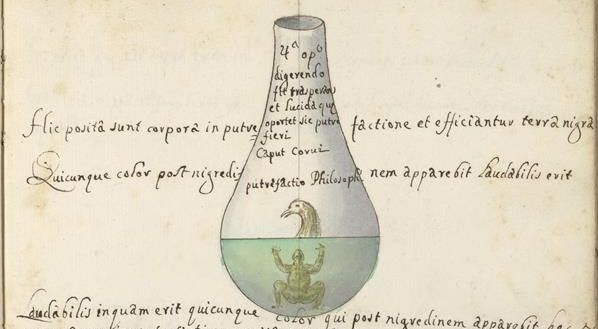 4ª opº
digerendo
fit trasperans
et lucida qu
oportet sic putre
fieri
Caput Corui
putrefactio Philosoph
Hic posita sunt corpora in putre factione et efficiantur terra nigra
Quicunque color post nigredi nem apparebit Laudabilis erit
Laudabilis inquam erit quicunque color qui post nigredinem apparebit